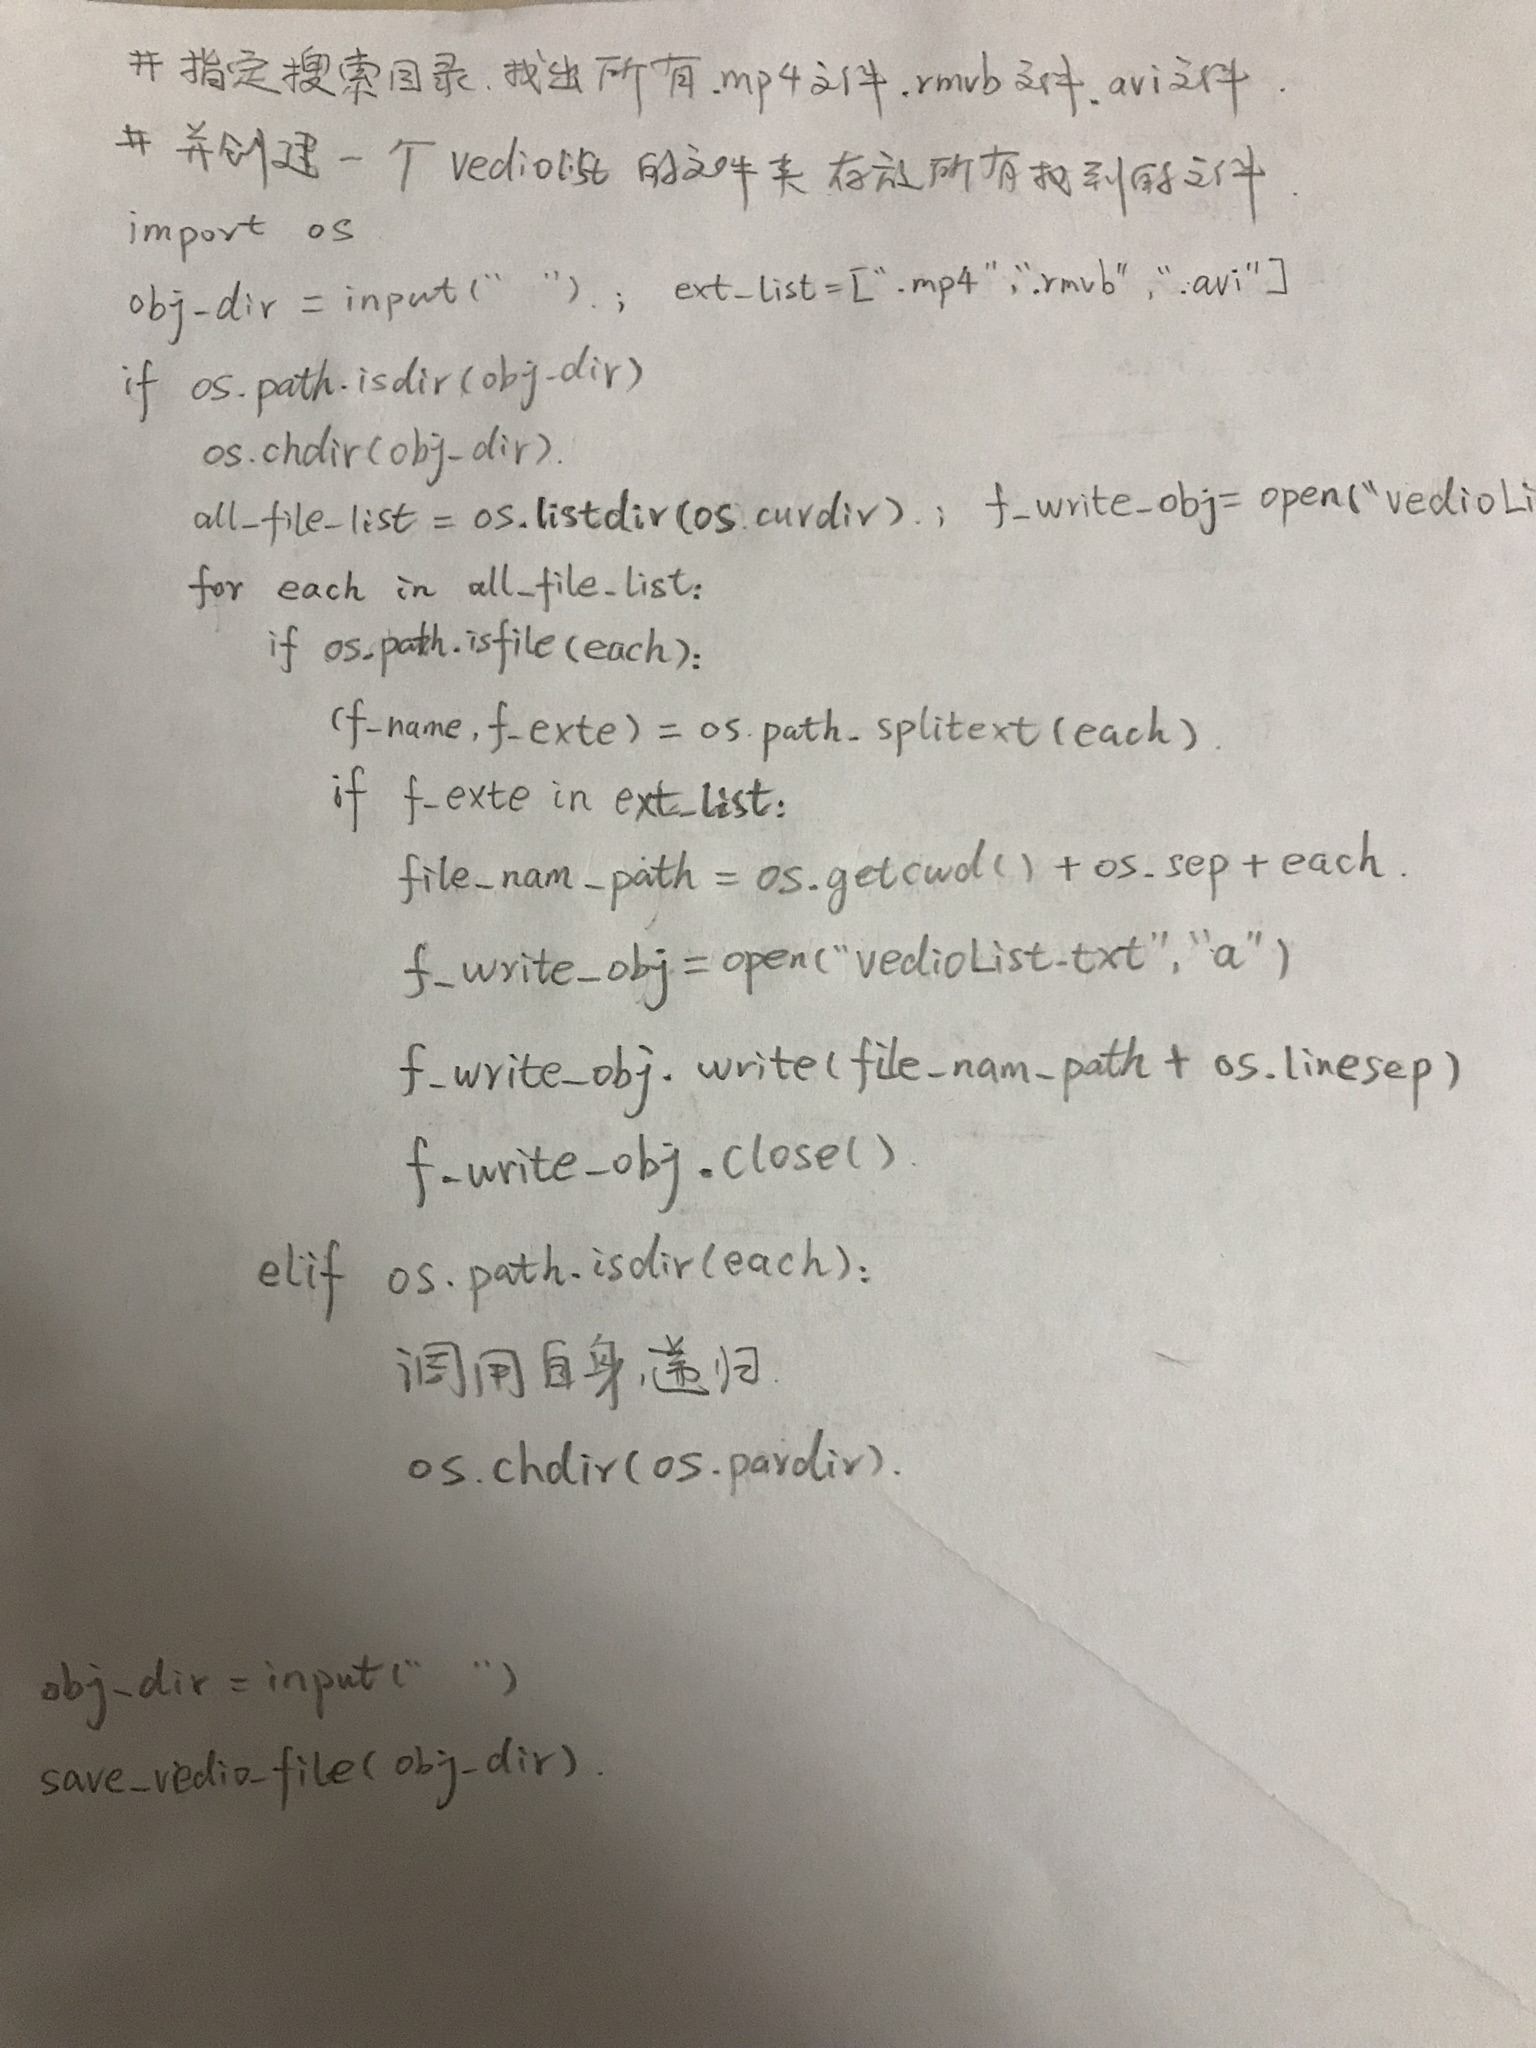 # 指定搜索目录.找出所有.mp4文件.rmvb文件.avi文件.
# 并创建一个vediolist的文件夹存放所有找到的文件.
import os
obj_dir = input(" "). ; ext_list=[".mp4",".rmvb",".avi"]
if os.path.isdir(obj_dir)
os.chdir(obj_dir).
all_file_list = os.listdir(os.curdir). ; f_write_obj= open("vedioLi
for each in all_file_list:
if os.path.isfile(each):
(f_name, f_exte) = os.path.splitext(each).
if f_exte in ext_list:
file_nam_path = os.getcwd() + os.sep + each.
f_write_obj = open("vedioList.txt", "a")
f_write_obj. write(file_nam_path + os.linesep)
f_write_obj.close().
elif os.path.isdir(each):
调用自身,递归.
os.chdir(os.pardir).
obj_dir = input(" ")
save_vedio_file(obj_dir).